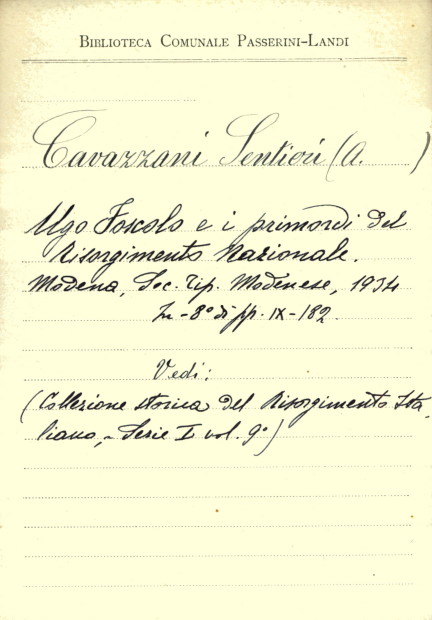 BIBLIOTECA COMUNALE PASSERINI-LANDI
Cavazzani Sentieri (A. )
Ugo Foscolo e i primordi del
Risorgimento Nazionale.
Modena, Soc. Tip. Modenese, 1934
In-8° di pp. IX-182.
Vedi:
(Collezione storica del Risorgimento Ita,
liano, - Serie I vol. 9°)